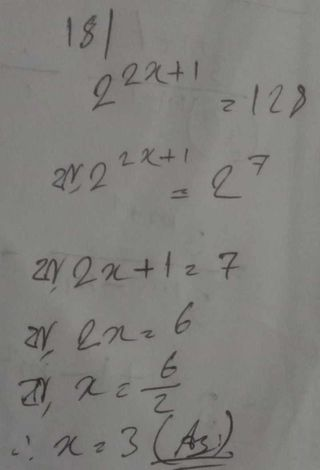 18|
2^{2x+1} = 128
বা, 2^{2x+1} = 2^7
বা, 2x+1 = 7
বা, 2x = 6
বা, x = \frac{6}{2}
∴ x = 3 (As:)